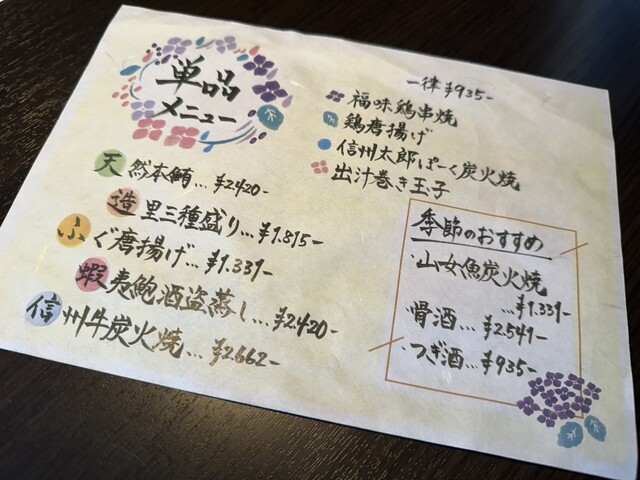 単品
メニュー
天然本鮪...¥2.420-
造里三種盛り...¥1.815-
ふぐ唐揚げ...¥1.331-
蝦夷鮑酒盗蒸し...¥2.420-
信州牛炭火焼...¥2.662-
一律¥935-
福味鶏串焼
鶏唐揚げ
信州太郎ぽーく炭火焼
出汁巻き玉子
季節のおすすめ
・山女魚炭火焼
...¥1.331-
・骨酒...¥2.541-
・つぎ酒...¥935-